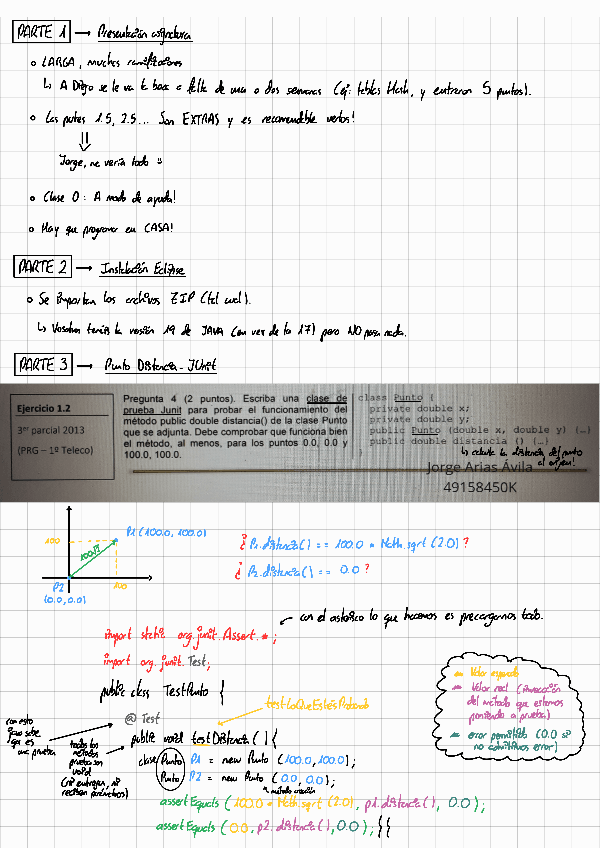 PARTE 1 → Presentación asignatura
◦ LARGA, muchas ramificaciones
↳ A Diego se le va la boca a falta de una o dos semanas (ej: tablas Hash, y entraron 5 puntos).
◦ Las partes 1.5, 2.5... Son EXTRAS y es recomendable verlos!
⇓
Jorge, ne vería todo
◦ Clase 0: A modo de ayuda!
◦ Hay que programar en CASA!
PARTE 2 → Instalación Eclipse
◦ Se importan los archivos ZIP (tal cual).
↳ Vosotros tenéis la versión 19 de JAVA (en vez de la 17) pero NO pasa nada.
PARTE 3 → Punto Distancia - JUnit
Ejercicio 1.2
3er parcial 2013
(PRG – 1º Teleco)
Pregunta 4 (2 puntos). Escriba una clase de
prueba Junit para probar el funcionamiento del
método public double distancia() de la clase Punto
que se adjunta. Debe comprobar que funciona bien
el método, al menos, para los puntos 0.0, 0.0 y
100.0, 100.0.
class Punto {
private double x;
private double y;
public Punto (double x, double y) {…}
public double distancia () {…}
}
↳ calcula la distancia del punto
al origen!
Jorge Arias Ávila
49158450K
P1 (100.0, 100.0)
100
100√2
100
P2
(0.0, 0.0)
¿ P1.distancia() == 100.0 * Math.sqrt (2.0)?
¿ P2.distancia() == 0.0?
con el asterisco lo que hacemos es precargarnos todo.
import static org.junit.Assert.*;
import org.junit.Test;
public class TestPunto {
testLoQueEstésProbando
@Test
public void testDistancia () {
con esto
Java sabe
que es
una prueba
todos los
métodos
prueba son
void
(ni entregan, ni
reciben parámetros)
clase Punto P1 = new Punto (100.0, 100.0);
Punto P2 = new Punto (0.0, 0.0);
método creación
assertEquals (100.0 * Math.sqrt (2.0), p1.distancia(), 0.0);
assertEquals (0.0, p2.distancia(), 0.0); }}
Valor esperado
Valor real (invocación
del método que estamos
poniendo a prueba)
error permitido (0.0 si
no admitimos error)